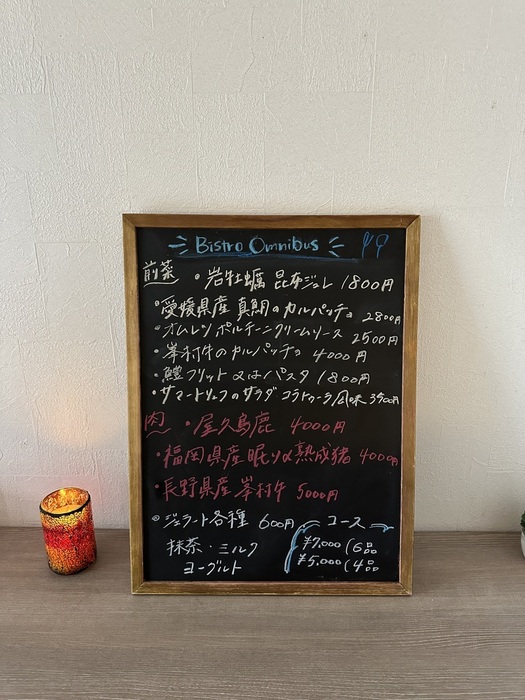 Bistro Omnibus
前菜 ・岩牡蠣 昆布ジュレ 1800円
・愛媛県産 真鯛のカルパッチョ 2800円
・オムレツ ポルチーニクリームソース 2500円
・峯村牛のカルパッチョ 4000円
・鱧フリット又はパスタ 1800円
・サマートリュフのサラダ コラトゥーラ風味 3500円
肉 ・屋久島鹿 4000円
・福岡県産 熟成猪 4000円
・長野県産 峯村牛 5000円
◎ジェラート各種 600円
抹茶・ミルク
ヨーグルト
コース
¥7,000 (6品
¥5,000 (4品